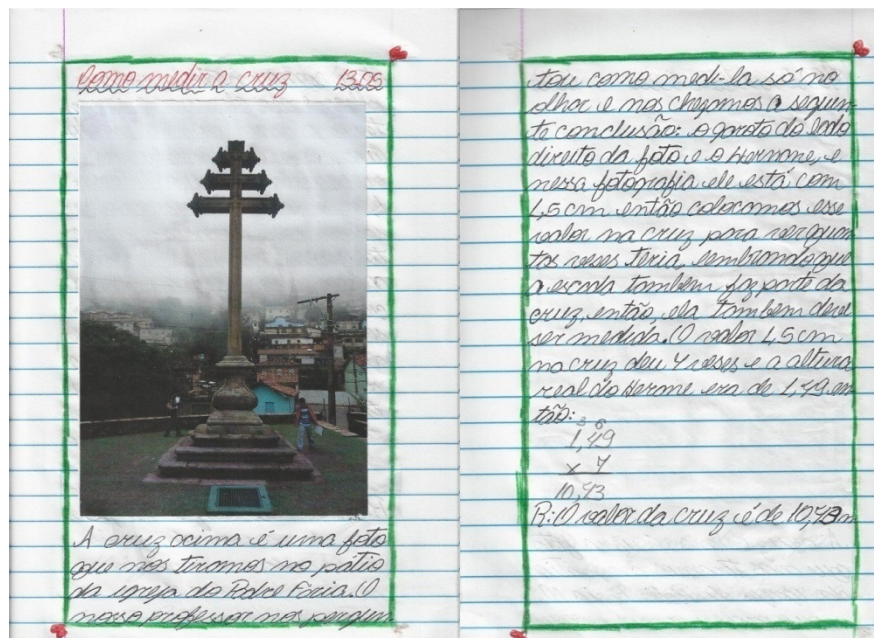 Como medir a cruz
A cruz acima é uma foto
que nós tiramos no pátio
da igreja do Padre Faria. O
nosso professor nos pergun
tou como medi-la só no
olhar e nos chegamos a seguin-
te conclusão: o garoto do lado
direito da foto e o Hernane, e
nessa fotografia ele está com
1,5 cm então colocamos esse
valor na cruz para ver quan
tas veses teria, lembrando que
a escada tambem faz parte da
cruz, então, ela tambem deve
ser medida. O valor 1,5 cm
na cruz deu 7 veses e a altura
real do Herme era de 1,49 en
tão:
3 6
1,49
x 7
10,43
R: O valor da cruz é de 10,43 m